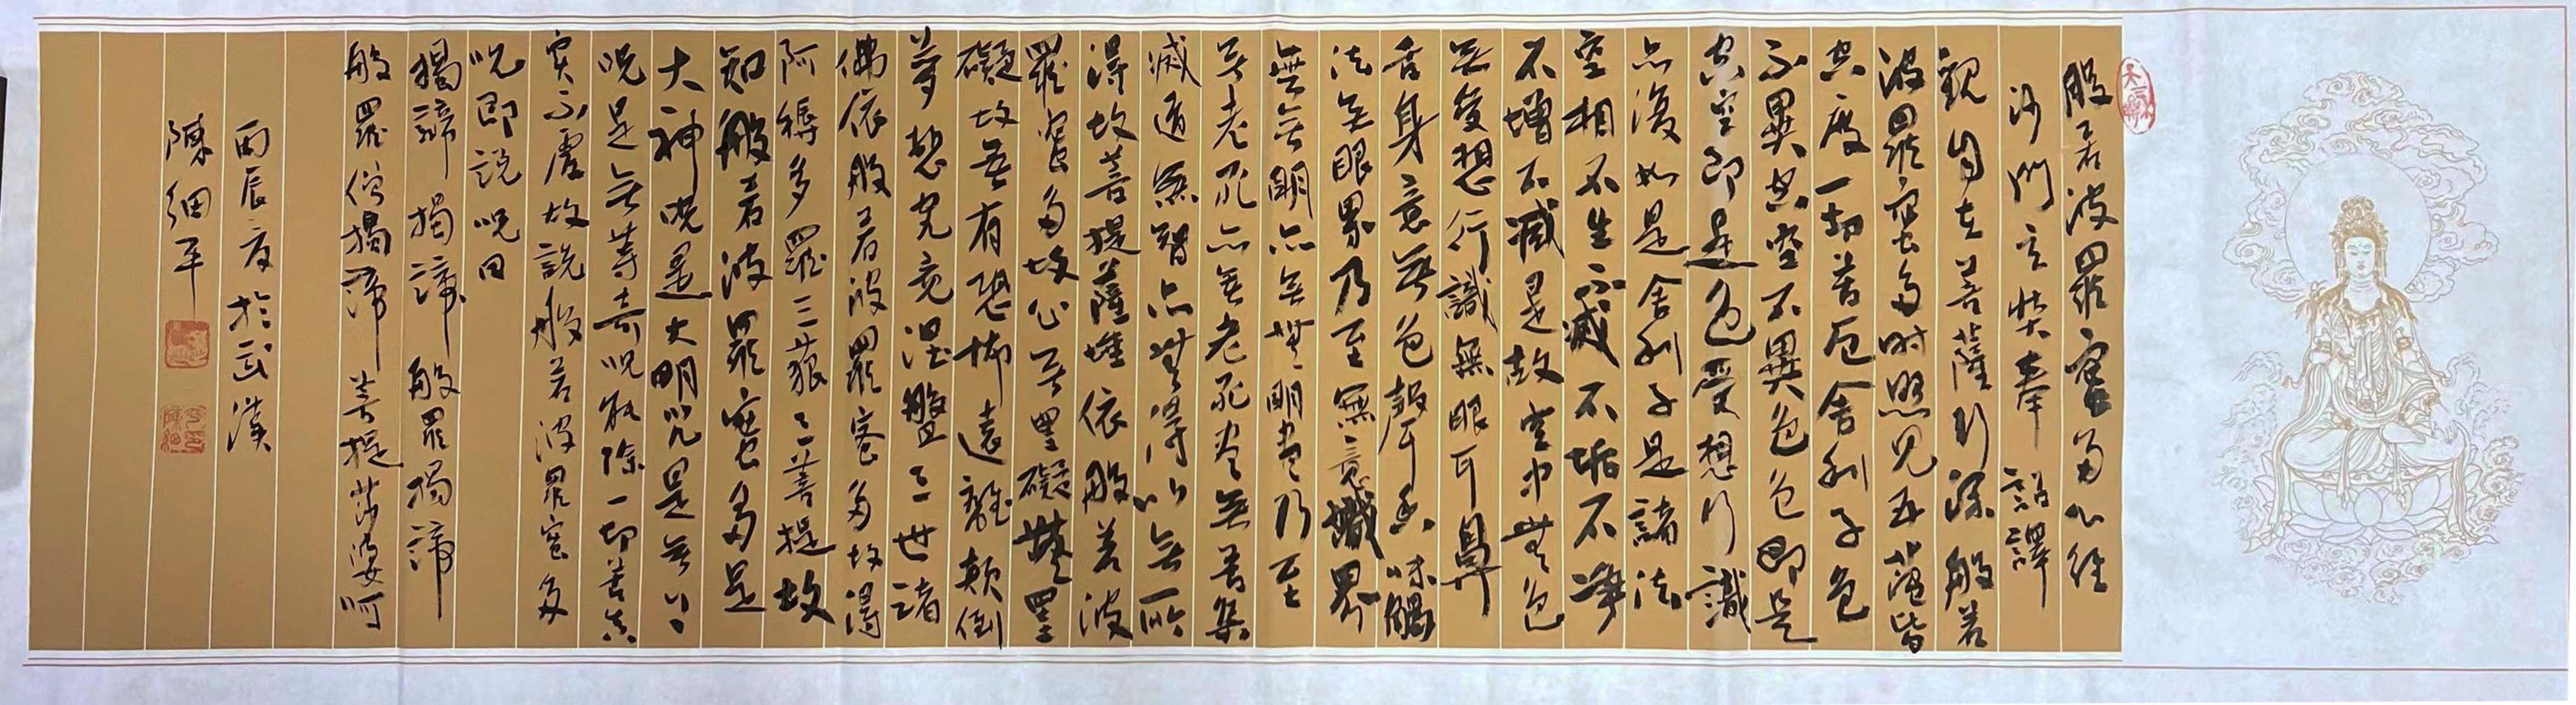 般若波羅蜜多心經
沙門玄奘奉詔譯
觀自在菩薩行深般若
波羅蜜多時照見五蘊皆
空度一切苦厄舍利子色
不異空空不異色色即是
空空即是色受想行識
亦復如是舍利子是諸法
空相不生不滅不垢不淨
不增不減是故空中無色
無受想行識無眼耳鼻
舌身意無色聲香味觸
法無眼界乃至無意識界
無無明亦無無明盡乃至
無老死亦無老死盡無苦集
滅道無智亦無得以無所
得故菩提薩埵依般若波
羅蜜多故心無罣礙無罣
礙故無有恐怖遠離顛倒
夢想究竟涅盤三世諸
佛依般若波羅蜜多故得
阿耨多羅三藐三菩提故
知般若波羅蜜多是
大神咒是大明咒是無上
咒是無等等咒能除一切苦真
實不虛故說般若波羅蜜多
咒即說咒曰
揭諦揭諦般羅揭諦
般羅僧揭諦菩提薩婆訶
於武漢
陳細平